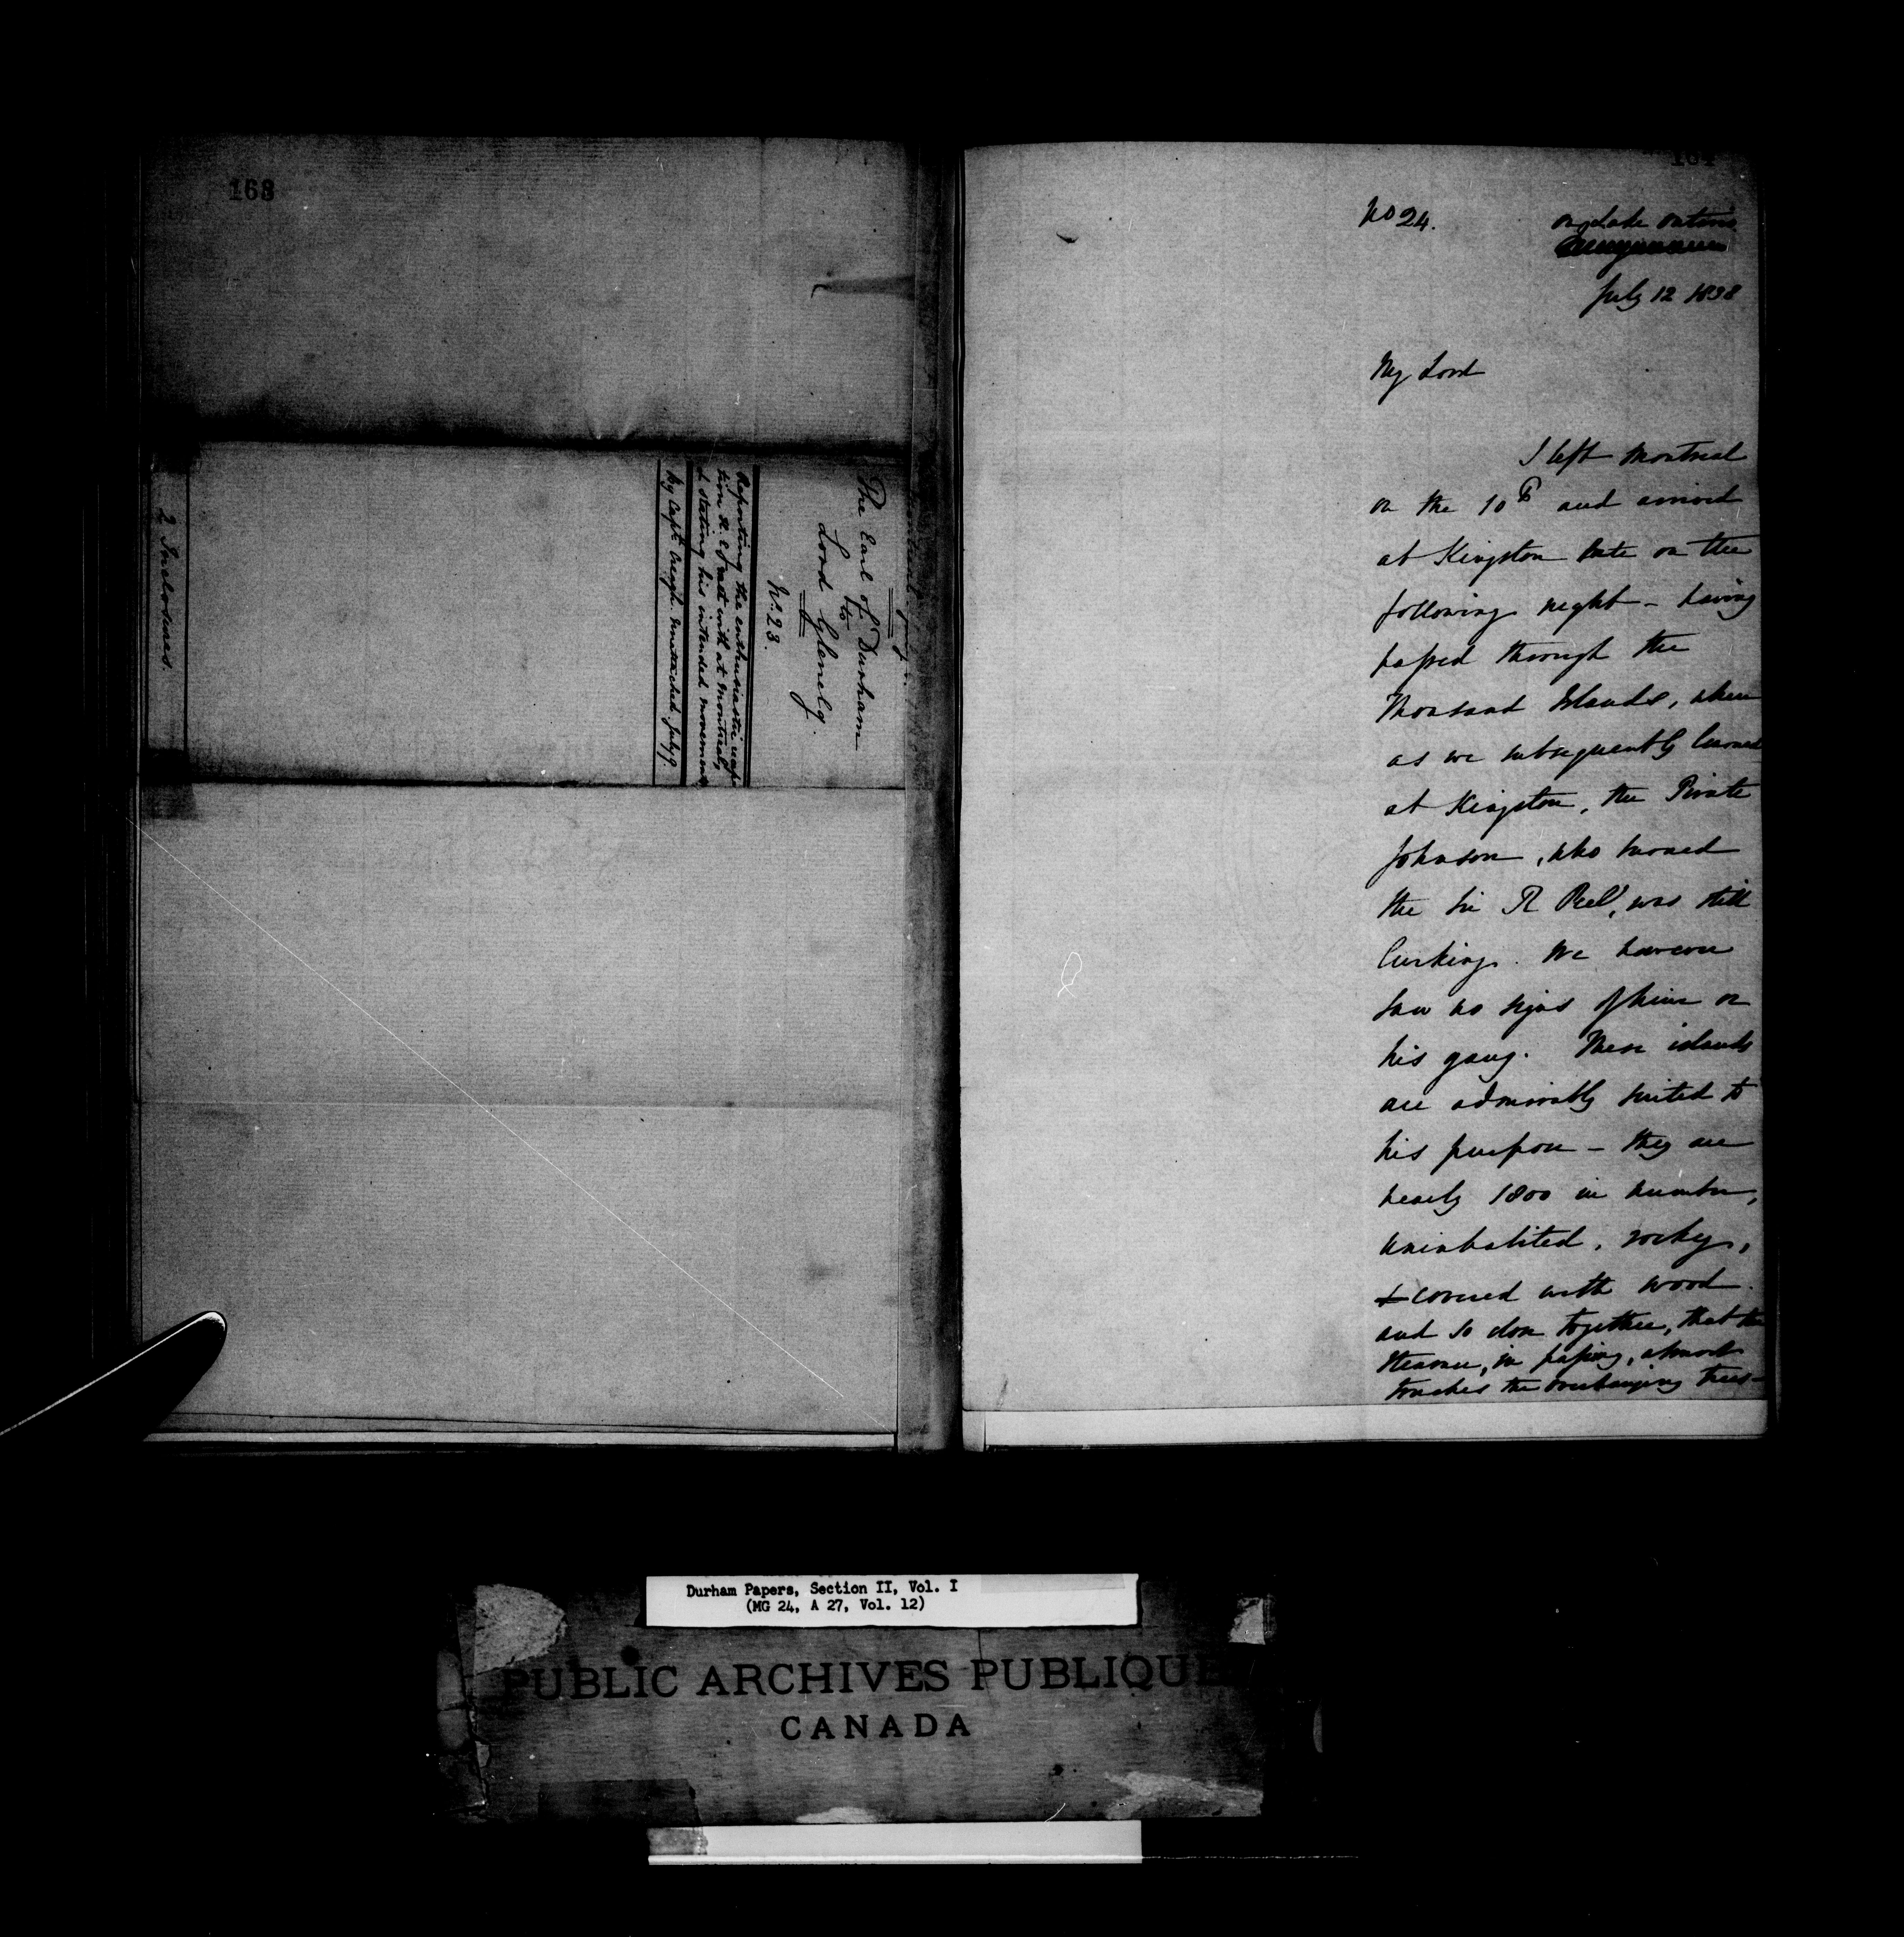 168
Montreal July
The Earl of Durham
to
Lord Glenelg.
No. 23.
Reporting the enthusiastic recep
tion H. E. met with at Montreal,
& stating his intended movements
by Capt. Creagh. July 9.
2 Inclosures.
164
No 24.
on Lake Ontario
July 12 1838
My Lord
I left Montreal
on the 10th and arrived
at Kingston late on the
following night – having
passed through the
Thousand Islands, where
as we subsequently learned
at Kingston, the Pirate
Johnson, who burned
the Sir R Peel, was still
lurking. We however
saw no signs of him or
his gang. These islands
are admirably suited to
his purpose – they are
nearly 1800 in number,
uninhabited, rocky,
& covered with wood
and so close together, that the
steamer, in passing, almost
touches the overhanging trees –
Durham Papers, Section II, Vol. I
(MG 24, A 27, Vol. 12)
PUBLIC ARCHIVES PUBLIQUE
CANADA